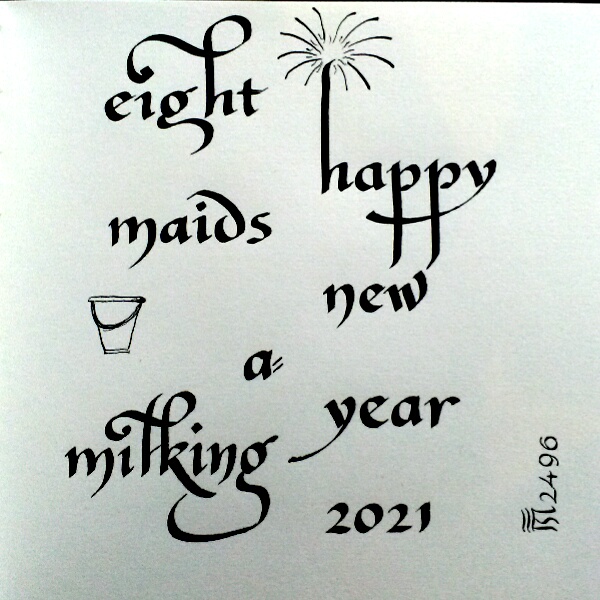 eight
maids
a=
milking
happy
new
year
2021
2496